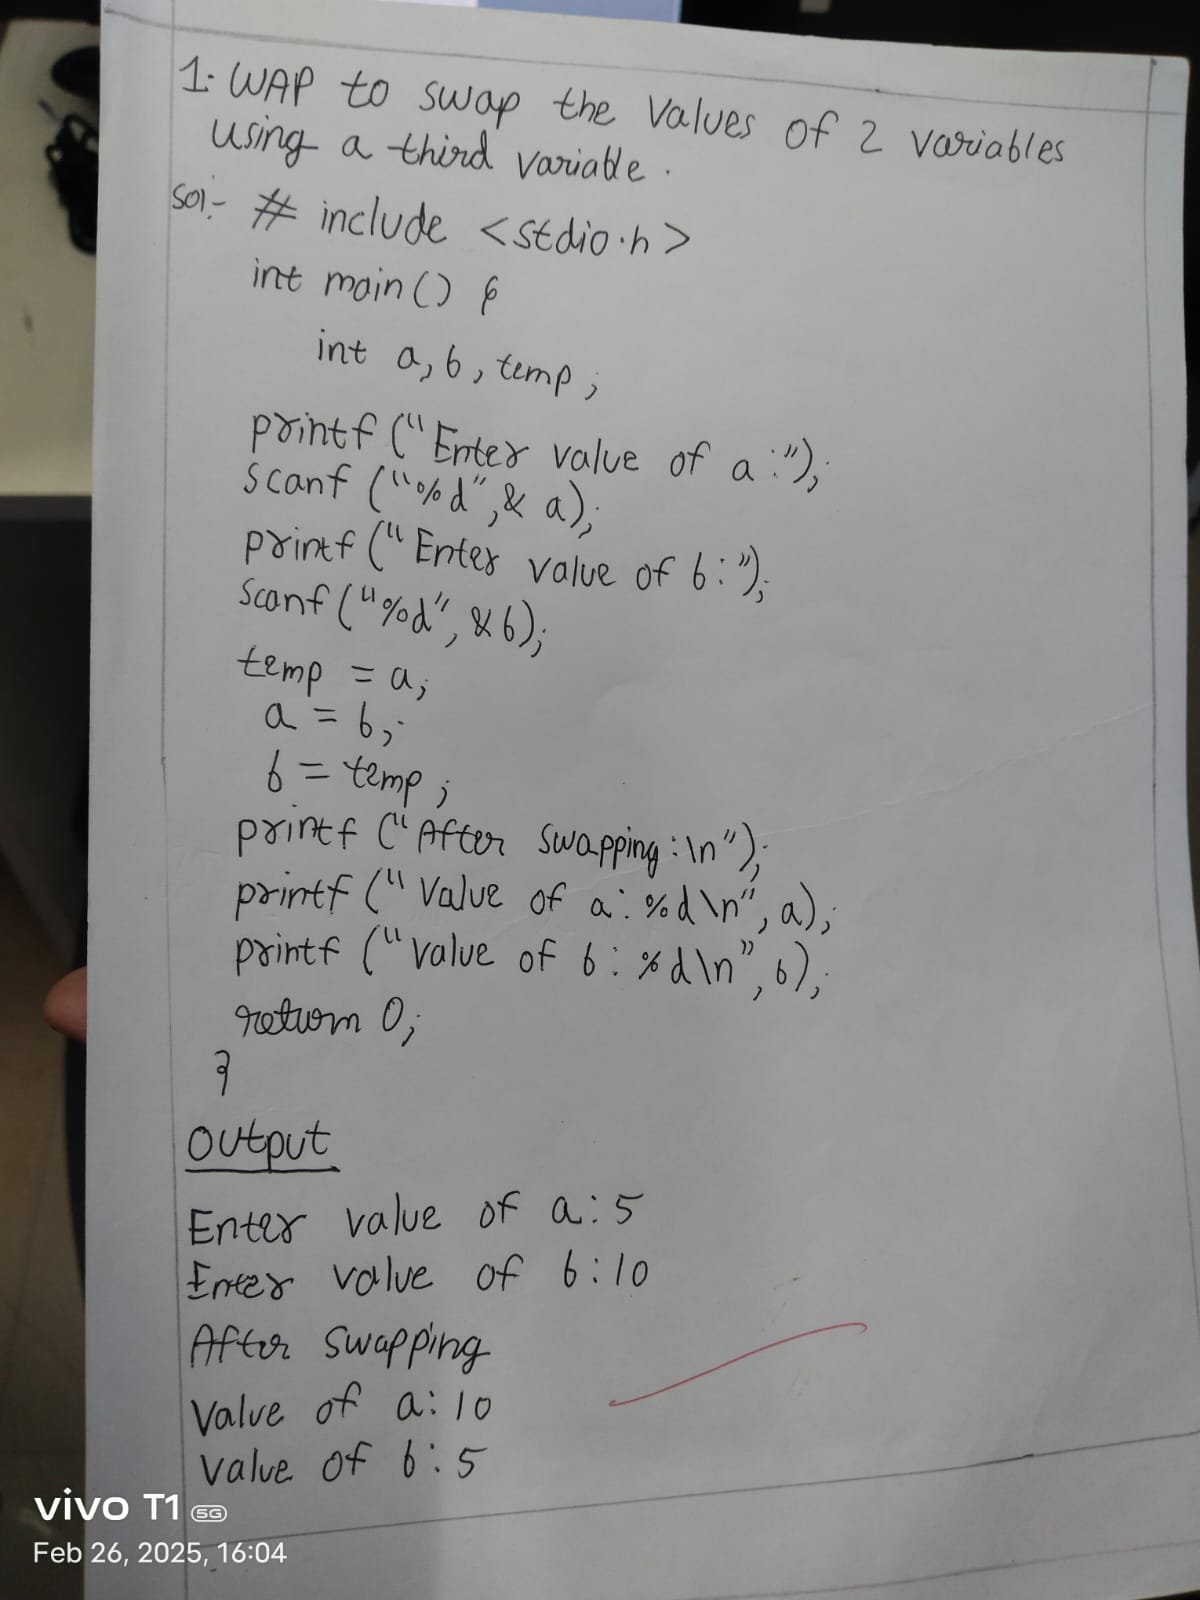 1. WAP to swap the values of 2 variables
using a third variable.
Sol:- # include <stdio.h>
int main() {
int a, b, temp;
printf ("Enter value of a:");
scanf ("%d", & a);
printf ("Enter value of b:");
scanf ("%d", & b);
temp = a;
a = b;
b = temp;
printf ("After swapping:\n");
printf ("Value of a: %d\n", a);
printf ("value of b: %d\n", b);
return 0;
}
Output
Enter value of a: 5
Enter value of b: 10
After swapping
Value of a: 10
Value of b: 5
vivo T1 5G
Feb 26, 2025, 16:04